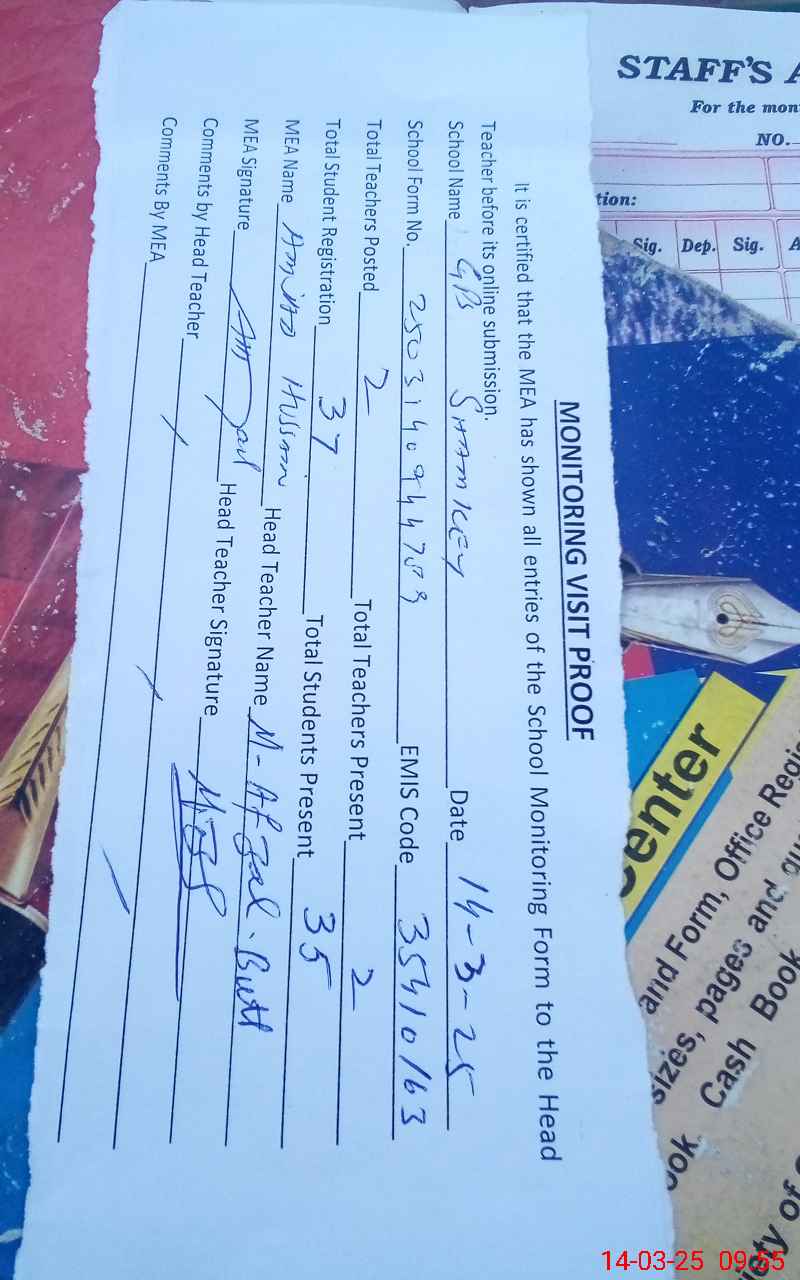 MONITORING VISIT PROOF
It is certified that the MEA has shown all entries of the School Monitoring Form to the Head
Teacher before its online submission.
School Name GPS SHAMKEY Date 14-3-25
School Form No. EMIS Code 35410163
Total Teachers Posted 2 Total Teachers Present 2
Total Student Registration 37 Total Students Present 35
MEA Name Amjad Hussain Head Teacher Name M-Afzal.Butt
MEA Signature Head Teacher Signature
Comments by Head Teacher
Comments By MEA
STAFF'S A
For the mon
NO.
tion:
Sig. Dep. Sig. A
enter
and Form, Office Regi
sizes, pages and qu
ook Cash Book
iety of
14-03-25 09:55